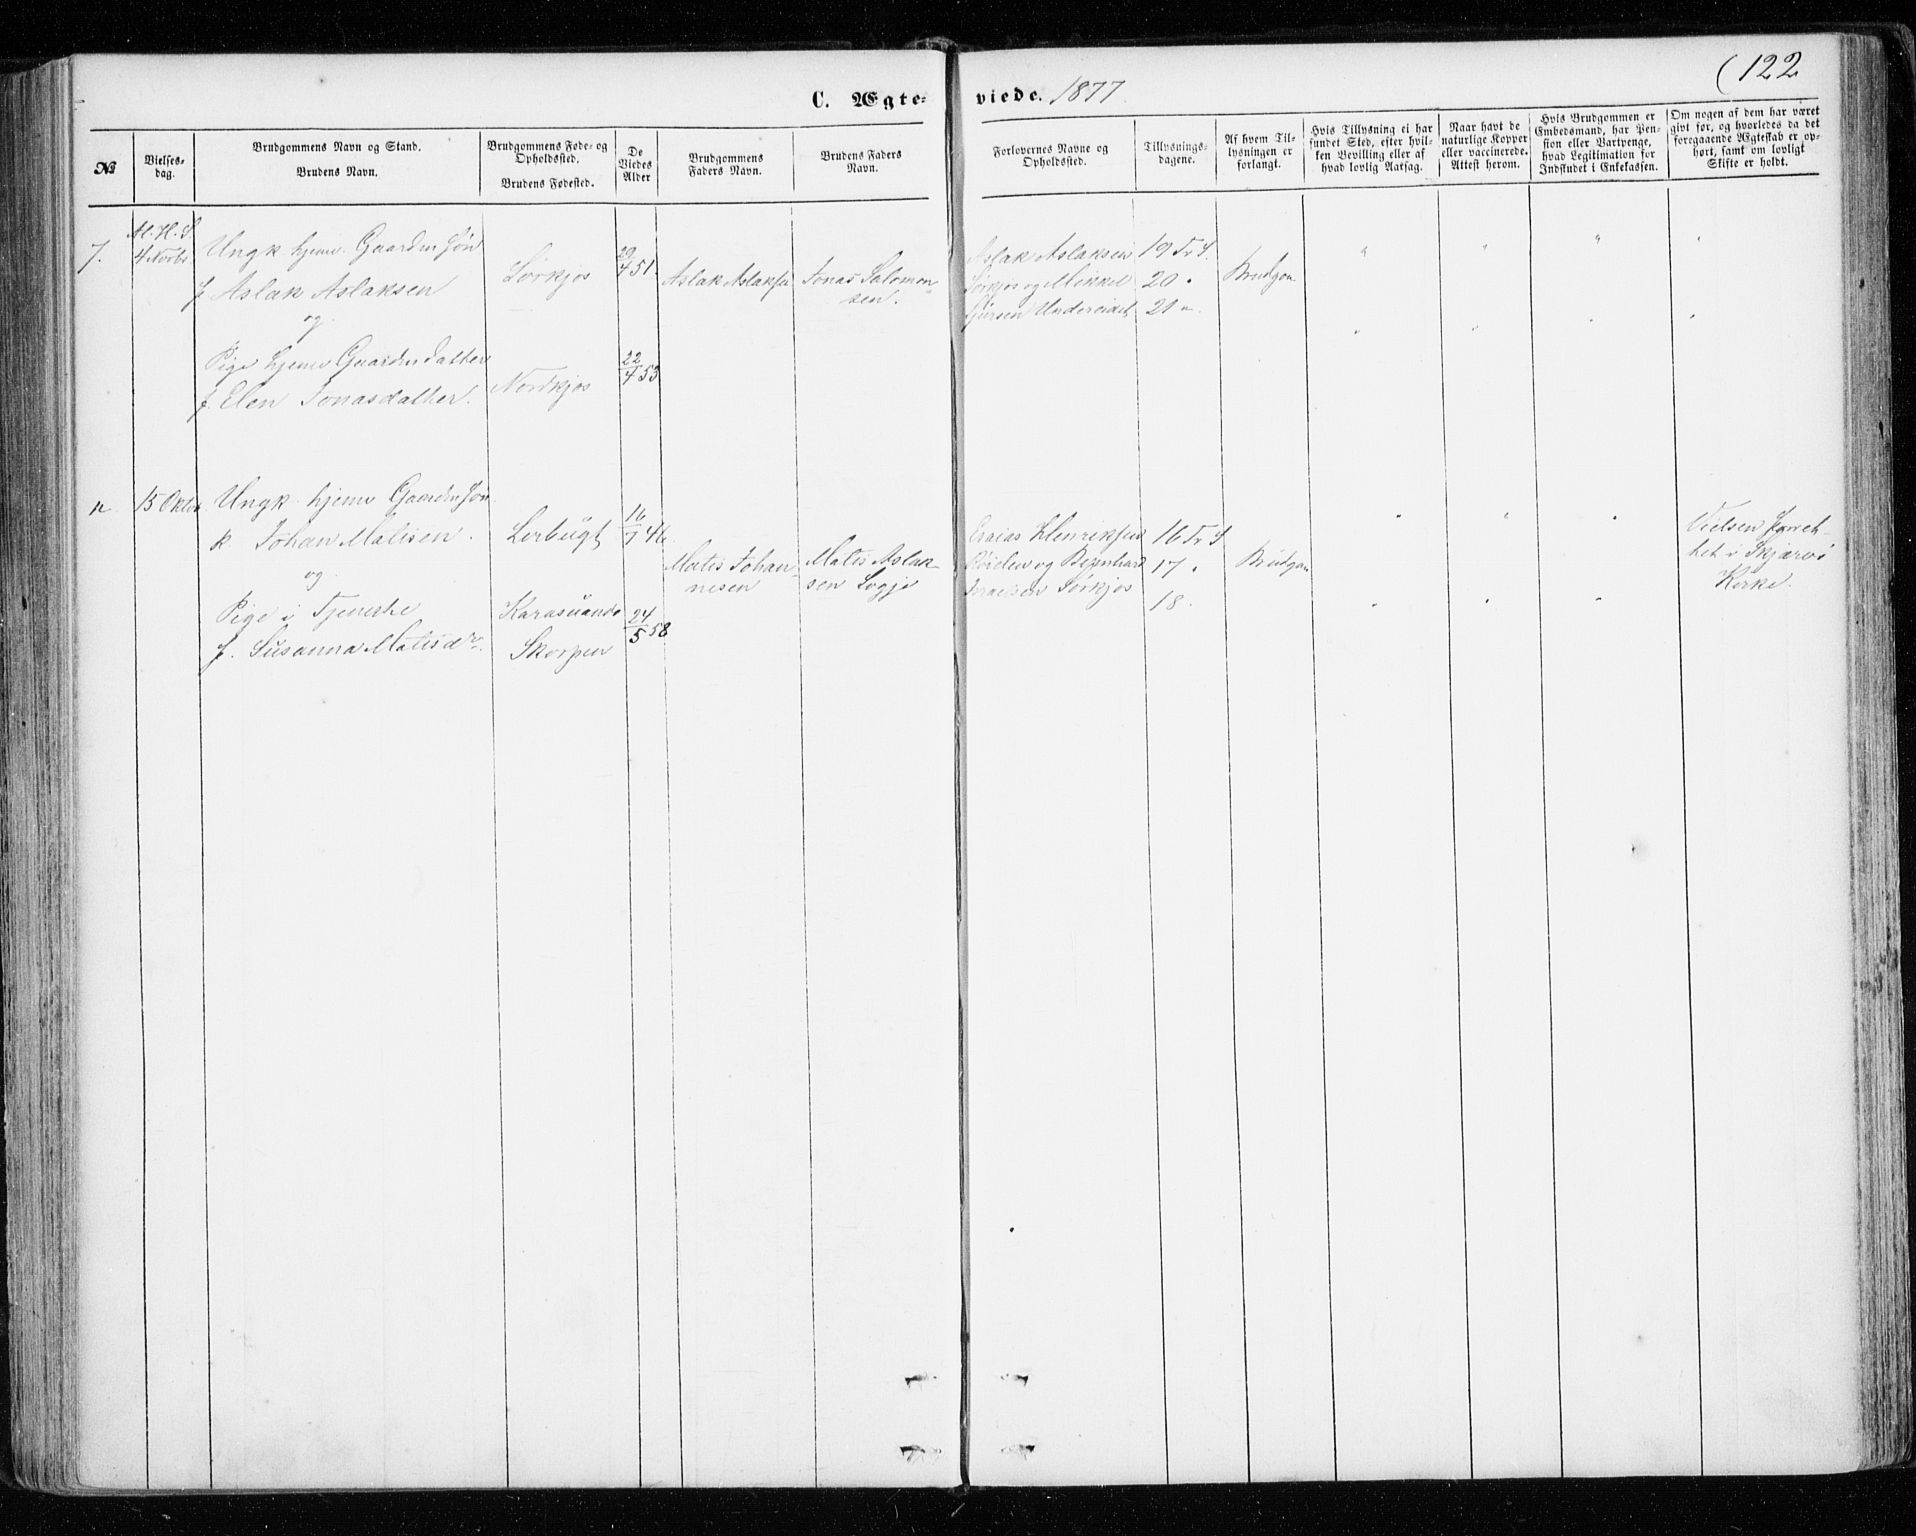 (122
C. Ægte-
viede. 1877.
№
Vielses-
dag.
Brudgommens Navn og Stand.
Brudens Navn.
Brudgommens Føde- og
Opholdssted.
Brudens Fødested.
De
Viedes
Alder
Brudgommens
Faders Navn.
Brudens Faders
Navn.
Forlovernes Navne og
Opholdssted.
Tillysnings-
dagene.
Af hvem Til-
lysningen er
forlangt.
Hvis Tillysning ei har
fundet Sted, efter hvil-
ken Bevilling eller af
hvad lovlig Aarsag.
Naar havt de
naturlige Kopper
eller vaccinerede.
Attest herom.
Hvis Brudgommen er
Embedsmand, har Pen-
sion eller Vartpenge,
hvad Legitimation for
Indskudet i Enkekassen.
Om nogen af dem har været
gift før, og hvorledes da det
foregaaende Ægteskab er op-
hørt, samt om lovligt
Skifte er holdt.
7.
Al. H. S.
4 Novbr
Ungk. hjemv. Gaardm Søn
f Aslak Aslaksen
og
Pige hjemv Gaardm Datter
f. Elen Jonasdatter.
Sørkjos
Nordkjos
29/4 51
22/4 53
Aslak Aslaksen
Jonas Salomon-
sen.
Aslak Aslaksen
Sørkjos og Mikkel
Undereidet
19 Tr S.
20 "
21 "
Brudgom
" " " "
" " " "
15 Oktbr
Ungk. hjemv Gaardm Søn
k. Johan Matisen.
og
Pige i Tjeneste
f. Susanna Matisdr.
Lerbugt
Karasuando
Skorpen
16/7 46
24/5 58
Matis Johan-
nesen
Matis Aslak-
sen
Esaias Henriksen
og Bernhard
Israelsen Sørkjos
16 Tr S
17 "
18 "
Brudgom
" " "
" " "
Vielsen forret-
tet i Skjærvø
Kirke.